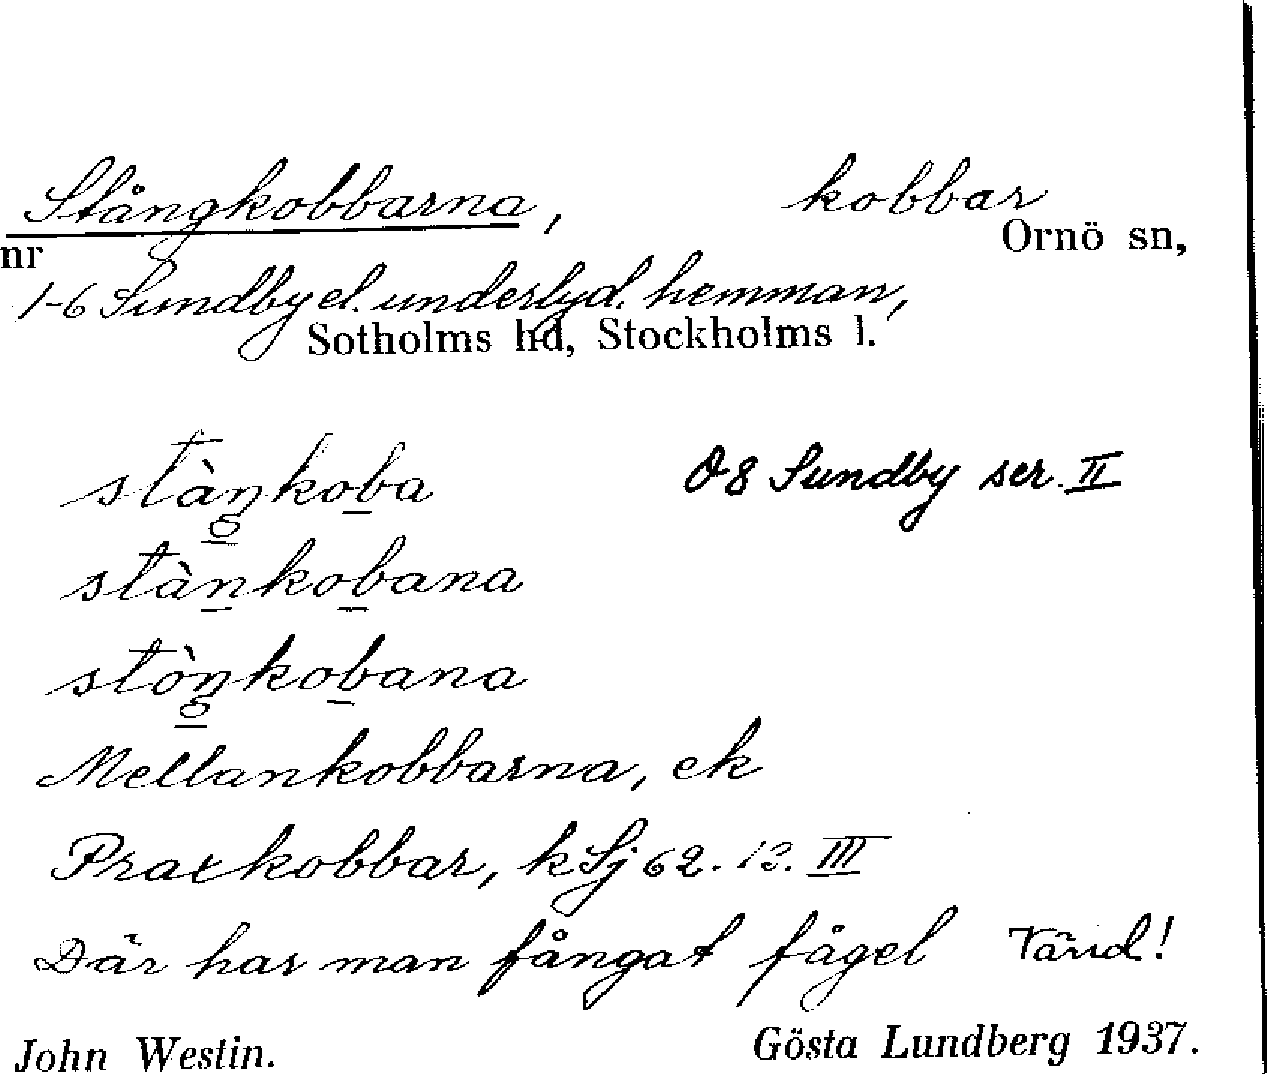 Stångkobbarna, kobbar
Ornö sn,
nr
1-6 Sundby el. underlyd. hemman,
Sotholms hd, Stockholms l.
stàŋkoba O8 Sundby ser. II
stànkobana
stòŋkobana
Mellankobbarna, ek
kobbar, k Sj 62. 12. III
Där har man fångat fågel Vänd!
John Westin. Gösta Lundberg 1937.